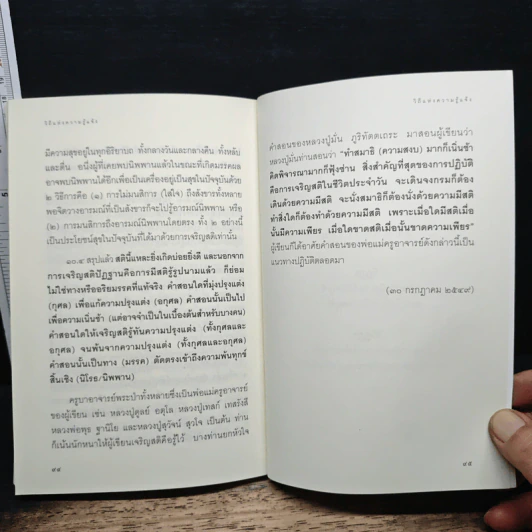 วิถีแห่งความรู้แจ้ง
มีความสุขอยู่ในทุกอิริยาบถ ทั้งกลางวันและกลางคืน ทั้งหลับ
และตื่น อนึ่งผู้ที่เคยพบนิพพานแล้วในขณะที่เกิดมรรคผล
อาจพบนิพพานได้อีกเพื่อเป็นเครื่องอยู่เป็นสุขในปัจจุบันด้วย
๒ วิธีการคือ (๑) การไม่มนสิการ (ใส่ใจ) ถึงสังขารทั้งหลาย
พอจิตวางอารมณ์ที่เป็นสังขารก็จะไปรู้อารมณ์นิพพาน หรือ
(๒) การมนสิการถึงอารมณ์นิพพานโดยตรง ทั้ง ๒ อย่างนี้
เป็นประโยชน์สุขในปัจจุบันที่ได้มาด้วยการเจริญสติเท่านั้น
๑๐.๔ สรุปแล้ว สตินี้แหละยิ่งเกิดบ่อยยิ่งดี และนอกจาก
การเจริญสติปัฏฐานคือการมีสติรู้รูปนามแล้ว ก็ย่อม
ไม่ใช่ทางหรืออริยมรรคที่แท้จริง คำสอนใดที่มุ่งปรุงแต่ง
(กุศล) เพื่อแก้ความปรุงแต่ง (อกุศล) คำสอนนั้นเป็นไป
เพื่อความเนิ่นช้า (แต่อาจจำเป็นในเบื้องต้นสำหรับบางคน)
คำสอนใดให้เจริญสติรู้ทันความปรุงแต่ง (ทั้งกุศลและ
อกุศล) จนพ้นจากความปรุงแต่ง (ทั้งกุศลและอกุศล)
คำสอนนั้นเป็นทาง (มรรค) ตัดตรงเข้าถึงความพ้นทุกข์
สิ้นเชิง (นิโรธ/นิพพาน)
ครูบาอาจารย์พระป่าทั้งหลายซึ่งเป็นพ่อแม่ครูอาจารย์
ของผู้เขียน เช่น หลวงปู่ดูลย์ อตุโล หลวงปู่เทสก์ เทสรังสี
หลวงพ่อพุธ ฐานิโย และหลวงปู่สุวัจน์ สุวโจ เป็นต้น ท่าน
ก็เน้นนักหนาให้ผู้เขียนเจริญสติคือรู้ไว้ บางท่านยกหัวใจ
๙๔
วิถีแห่งความรู้แจ้ง
คำสอนของหลวงปู่มั่น ภูริทัตตเถระ มาสอนผู้เขียนว่า
หลวงปู่มั่นท่านสอนว่า "ทำสมาธิ (ความสงบ) มากก็เนิ่นช้า
คิดพิจารณามากก็ฟุ้งซ่าน สิ่งสำคัญที่สุดของการปฏิบัติ
คือการเจริญสติในชีวิตประจำวัน จะเดินจงกรมก็ต้อง
เดินด้วยความมีสติ จะนั่งสมาธิก็ต้องนั่งด้วยความมีสติ
ทำสิ่งใดก็ต้องทำด้วยความมีสติ เพราะเมื่อใดมีสติเมื่อ
นั้นมีความเพียร เมื่อใดขาดสติเมื่อนั้นขาดความเพียร"
ผู้เขียนก็ได้อาศัยคำสอนของพ่อแม่ครูอาจารย์ดังกล่าวนี้เป็น
แนวทางปฏิบัติตลอดมา
(๓๐ กรกฎาคม ๒๕๔๗)
๙๕